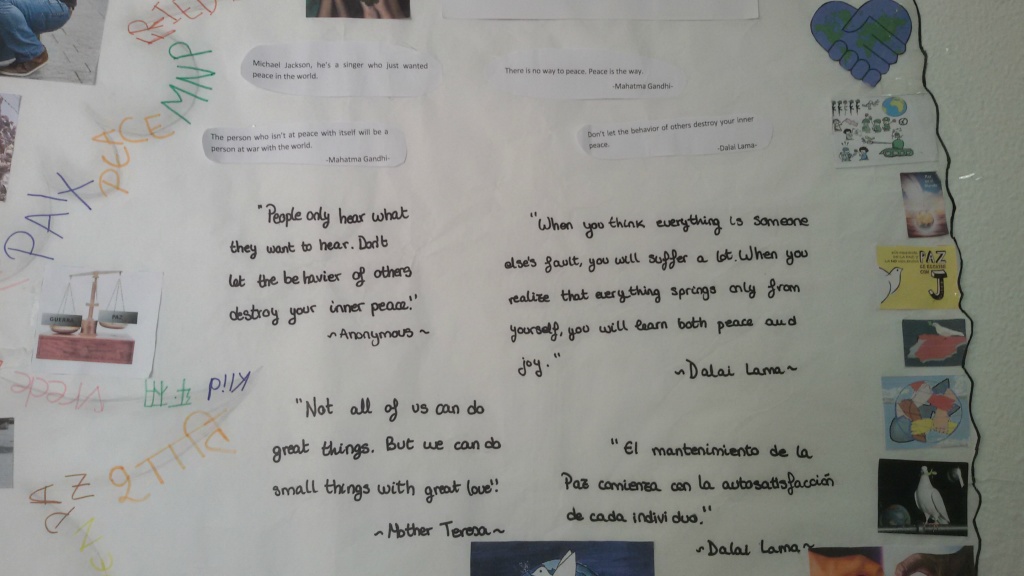 PRIED
MNP
PEACE
PAIX
Michael Jackson, he's a singer who just wanted
peace in the world.
There is no way to peace. Peace is the way.
-Mahatma Gandhi-
The person who isn't at peace with itself will be a
person at war with the world.
-Mahatma Gandhi-
Don't let the behavior of others destroy your inner
peace.
-Dalal Lama-
"People only hear what
they want to hear. Don't
let the behavier of others
destroy your inner peace!"
~Anonymous~
"When you think everything is someone
else's fault, you will suffer a lot. When you
realize that everything springs only from
yourself, you will learn both peace and
joy."
~Dalai Lama~
PAZ
GUERRA
PAZ
vrede
和平
Klid
शांति
PAZ
"Not all of us can do
great things. But we can do
small things with great love".
~Mother Teresa~
"El mantenimiento de la
Paz comienza con la autosatisfacción
de cada individuo."
~Dalai Lama~